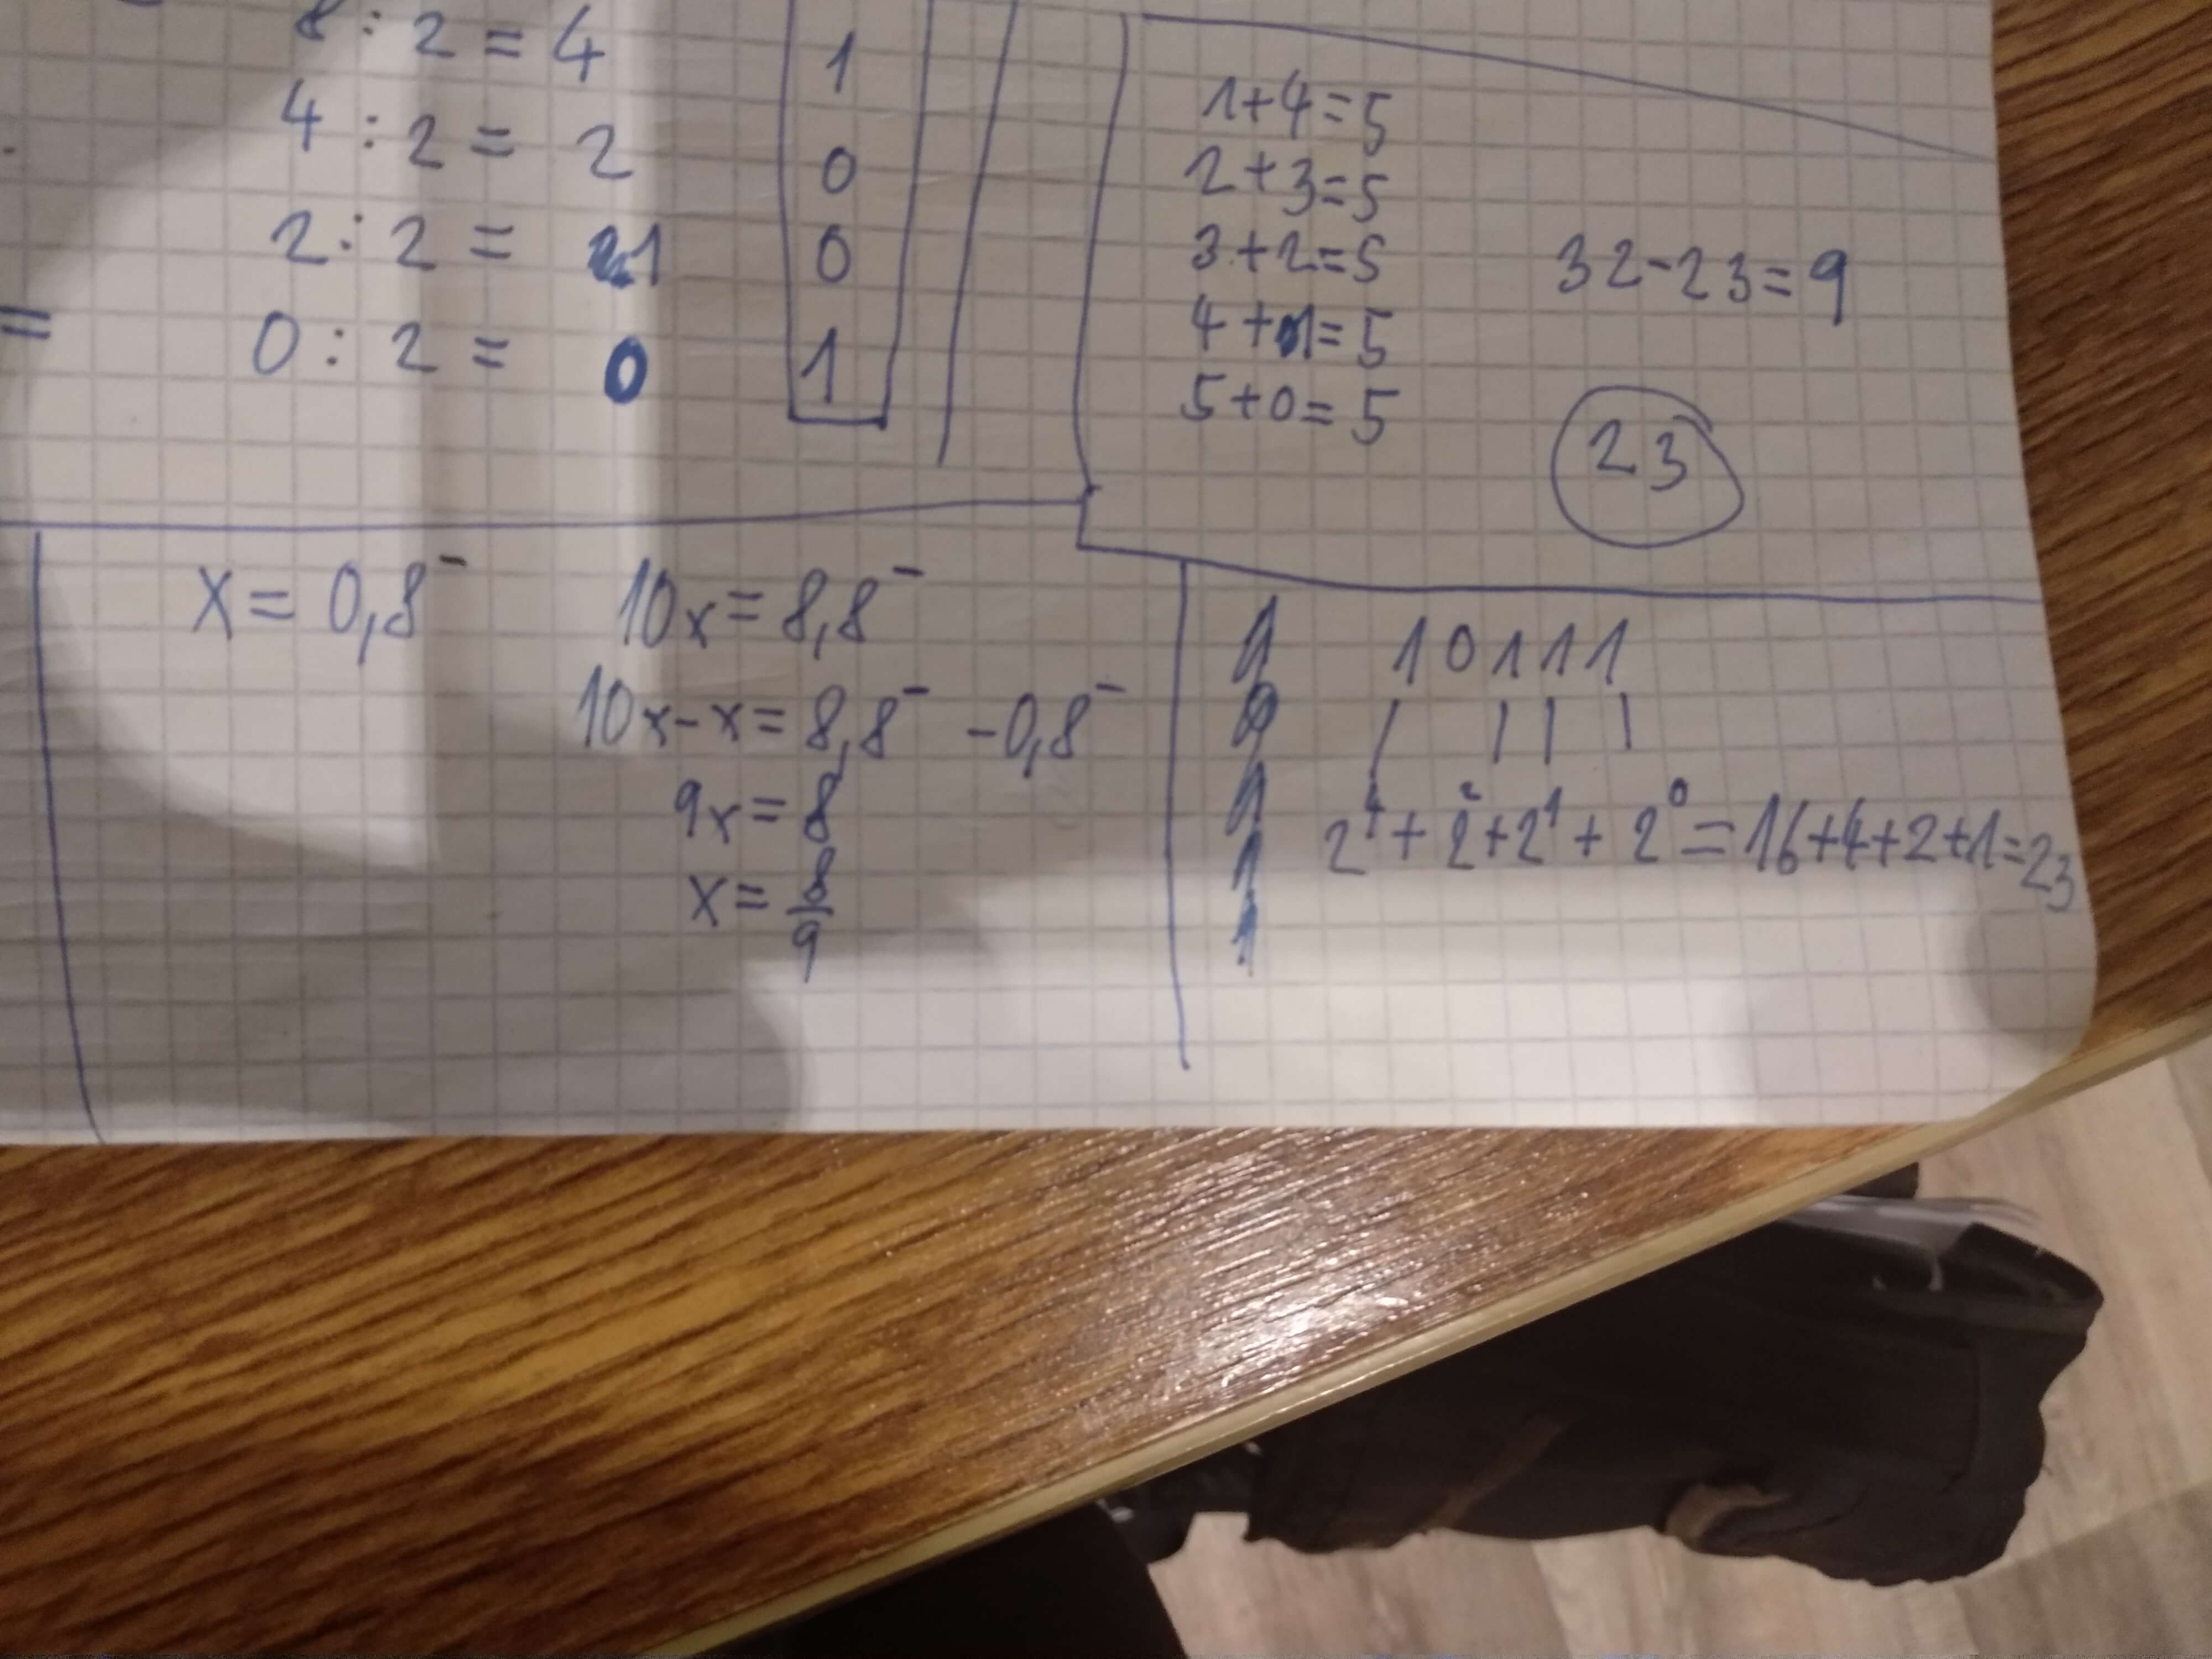 8 : 2 = 4 1
4 : 2 = 2 0
2 : 2 = 1 0
= 0 : 2 = 0 1
1+4=5
2+3=5
3+2=5
4+1=5
5+0=5
32-23=9
23
x = 0,8⁻ 10x = 8,8⁻
10x - x = 8,8⁻ - 0,8⁻
9x = 8
x = 8/9
1
0
1
1
1
10111
2⁴ + 2² + 2¹ + 2⁰ = 16+4+2+1=23